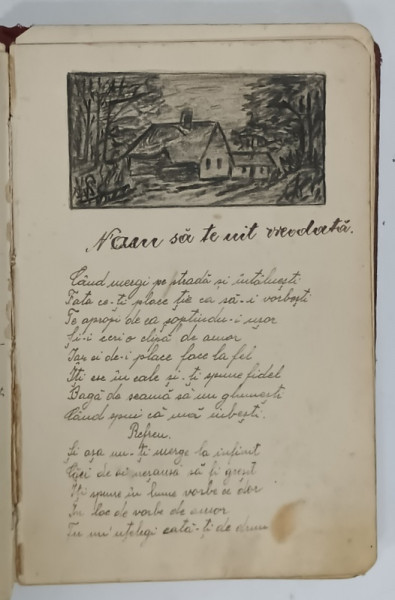 N'am să te uit vreodată.
Când mergi pe stradă și întâlnești
Fata ce-ți place ție ca să-i vorbești
Te apropi de ea șoptindu-i ușor
Și-i ceri o clipă de amor
Iar ei de-i place face la fel
Iți ese în cale și-ți spune fidel
Bagă de seamă să nu glumești
Când spui că mă iubești.
Refren.
Și așa nu-ți merge la infinit
Căci de să fi greșit
Iți spune în lume vorbe de dor
In loc de vorbe de amor
Tu nu'nțelegi cată-ți de drum